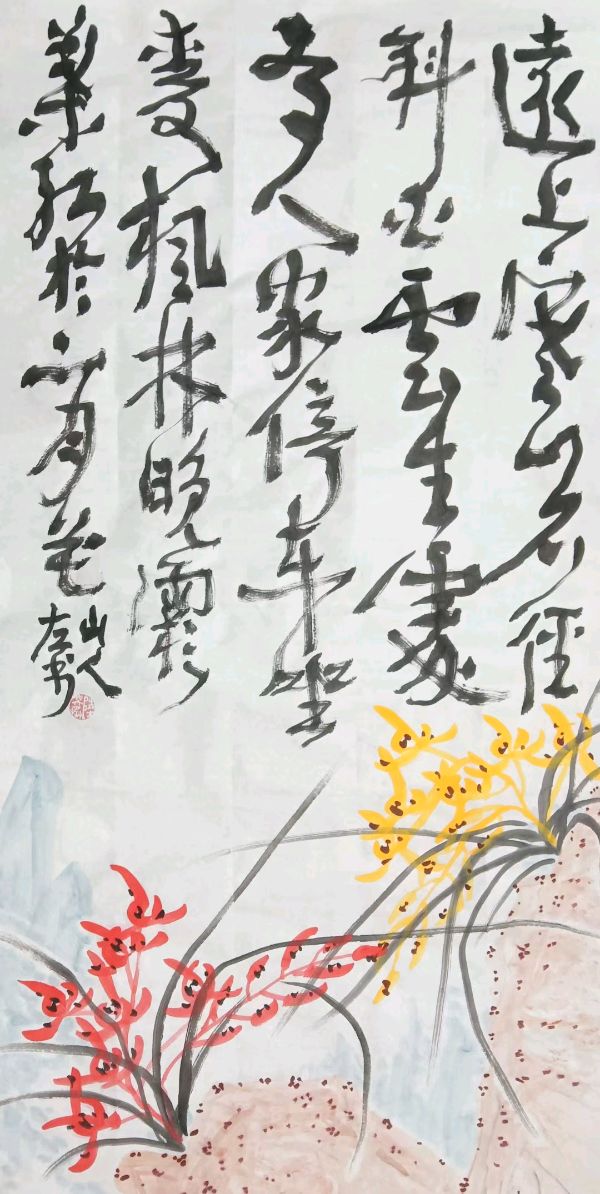 遠上寒山石徑
斜白雲生處
有人家停車坐
愛楓林晚霜
葉紅於二月花
山人
左书